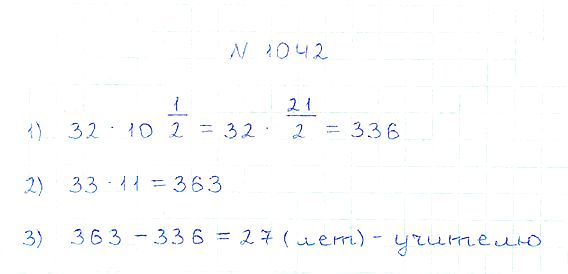 N 1042
1) 32 · 10 1/2 = 32 · 21/2 = 336
2) 33 · 11 = 363
3) 363 - 336 = 27 (лет) - учителю